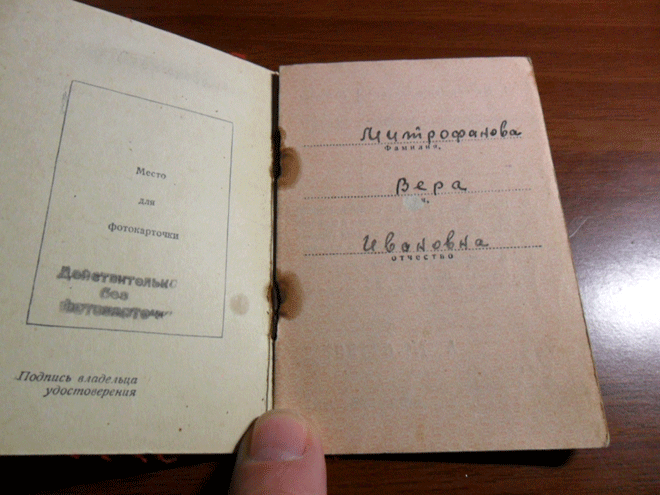 Место
для
фотокарточки
Действительно
без
фотокарточки
Подпись владельца
удостоверения
Митрофанова
Фамилия,
Вера
Ивановна
отчество